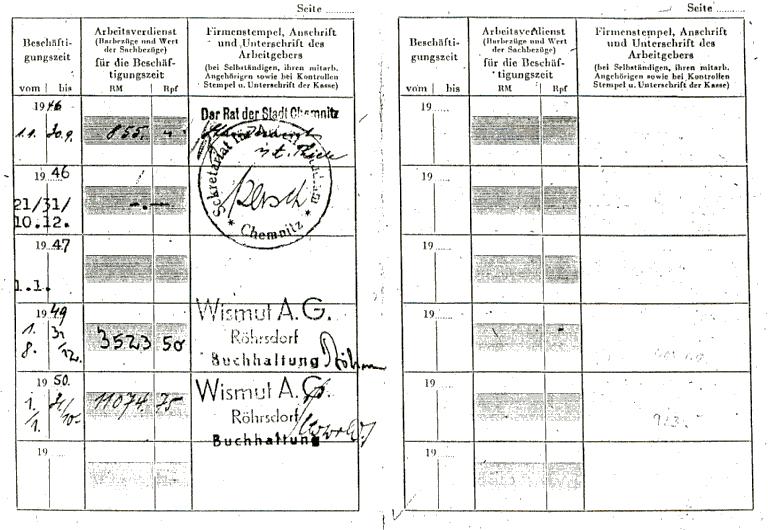 Seite
Beschäfti-
gungszeit
vom bis
Arbeitsverdienst
(Barbezüge und Wert
der Sachbezüge)
für die Beschäf-
tigungszeit
RM Rpf
Firmenstempel, Anschrift
und Unterschrift des
Arbeitgebers
(bei Selbständigen, ihren mitarb.
Angehörigen sowie bei Kontrollen
Stempel u. Unterschrift der Kasse)
1946
1.1. 30.9. 855.
Der Rat der Stadt Chemnitz
Sekretariat
* Chemnitz *
19 46
21/31/
10.12. -.--
19 47
1.1.
1949
1. 31.
8. 12. 3523 50
Wismut A.G.
Röhrsdorf
Buchhaltung
19 50.
1. 31/
/1. 10- 11074. 75
Wismut A.G.
Röhrsdorf
Buchhaltung
19
Seite
Beschäfti-
gungszeit
vom bis
Arbeitsverdienst
(Barbezüge und Wert
der Sachbezüge)
für die Beschäf-
tigungszeit
RM Rpf
Firmenstempel, Anschrift
und Unterschrift des
Arbeitgebers
(bei Selbständigen, ihren mitarb.
Angehörigen sowie bei Kontrollen
Stempel u. Unterschrift der Kasse)
19
19
19
19
19
19